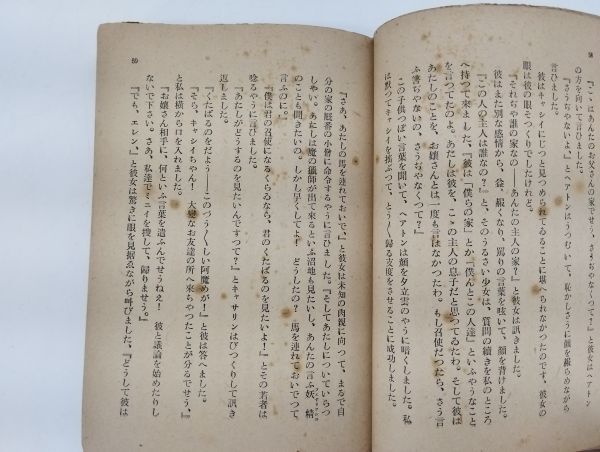 58
『こゝはあんたのお父さんの家でせう、さうぢやない？』と彼女はヘアトン
の方を向いて言ひました。
『さうぢやないよ。』とヘアトンはうつむいて、恥かしさうに顔を赧めながら
言ひました。
彼はキャシイにじつと見つめられてゐることに堪へられなかつたのです、彼女の
眼は彼の眼そつくりでしたけれど。
『それぢや誰の家なの――あんたの主人の家？』と彼女は訊きました。
彼はまた別な感情から、益〻赧くなり、罵りの言葉を呟いて、顔を背けました。
『この人の主人は誰なの？』と、そのうるさい少女は、質問の續きを私のところ
へ持つて來ました。『彼は「僕らの家」とか「僕んとこの人達」とかいふやうなこと
を言つてたのよ。あたしは彼を、こゝの主人の息子だと思つてゐたわ。そして彼は
あたしのことを、お孃さんとは一度も言はなかつたわ。もし召使だつたら、さう言
ふ筈ぢやないの、さうぢやなくつて？』
この子供つぽい言葉を聞いて、ヘアトンは顔を夕立雲のやうに暗くしました。私
は默つてキャシイを搖ぶつて、とう〳〵歸る支度をさせることに成功しました。
59
『さあ、あたしの馬を連れておいで、』と彼女は未知の肉親に向つて、まるで自
分の家の厩番の小僧に命令するやうに言ひました。『そしてあたしについていらつ
しやい。あたしは魔の獵師が出て來るといふ沼地も見たいし、あんたの言ふ妖精
のことも聞きたいの。しかし早くしてよ！ どうしたの？ 馬を連れておいでつて
言ふのに。』
『僕は君の召使になるくらゐなら、君のくたばるのを見たいよ！』とその若者は
唸るやうに言ひました。
『あたしがどうするのを見たいんですつて？』とキャサリンはびつくりして訊き
返しました。
『くたばるのをだよう――このづう〳〵しい阿魔めが！』と彼は答へました。
『そら、キャシイちやん！ 大變なお友達の所へ來ちやつたことが分るでせう、』
と私は横から口を入れました。
『お孃さん相手に、何といふ言葉を遣ふんでせうねえ！ 彼と議論を始めたりし
ないで下さい。さあ、私達でミニイを搜して、歸りませう。』
『でも、エレン、』と彼女は驚きに眼を見据ゑながら叫びました、『どうして彼は